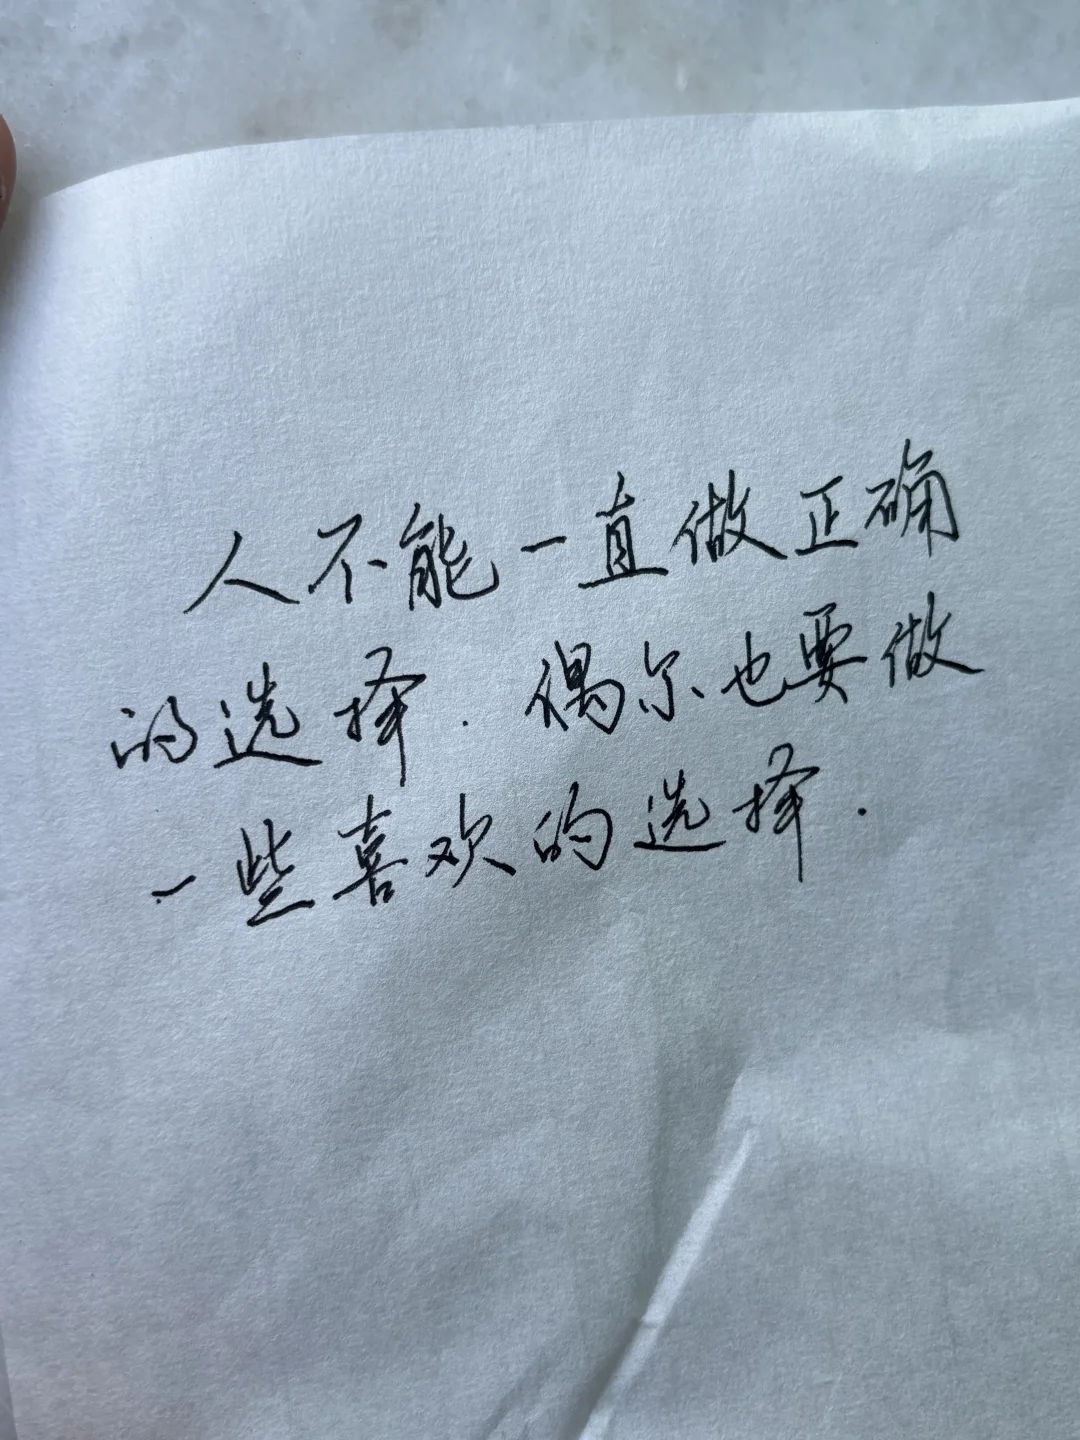 人不能一直做正确
的选择.偶尔也要做
一些喜欢的选择.